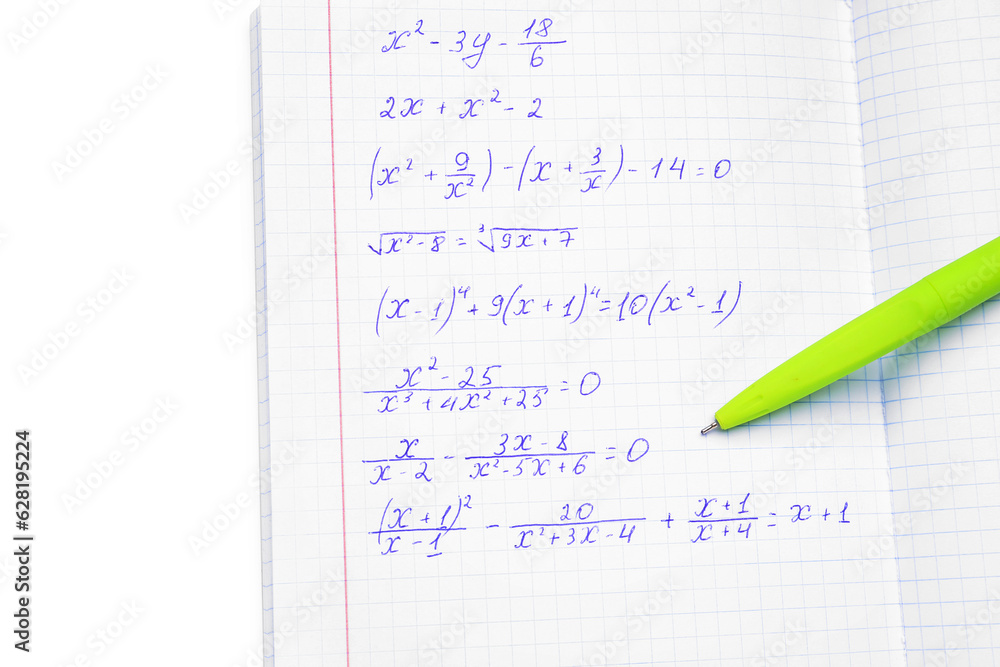 x² - 3y - 18/6
2x + x² - 2
(x² + 9/x²) - (x + 3/x) - 14 = 0
√(x² - 8) = ³√(9x + 7)
(x - 1)⁴ + 9(x + 1)⁴ = 10(x² - 1)
(x² - 25)/(x³ + 4x² + 25) = 0
x/(x - 2) - (3x - 8)/(x² - 5x + 6) = 0
(x + 1)²/(x - 1) - 20/(x² + 3x - 4) + (x + 1)/(x + 4) = x + 1
Adobe Stock | #628195224